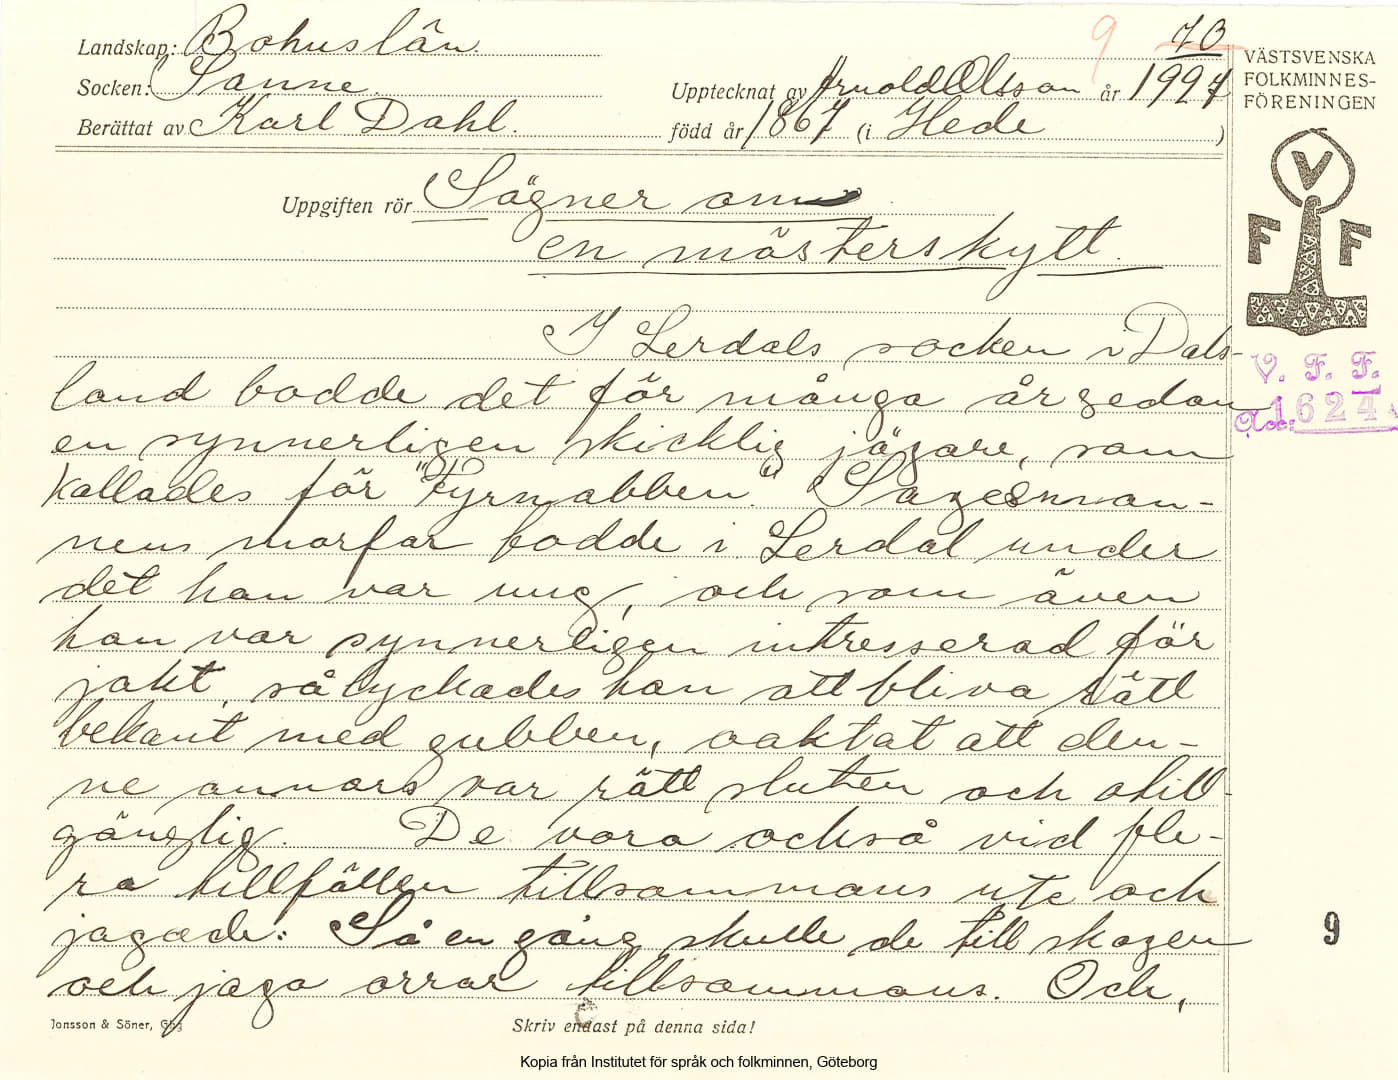 Landskap: Bohuslän.
Socken: Sanne.
Berättat av Karl Dahl.
9 70
Upptecknat av Arnold Olsson år 1927
född år 1867 (i Hede )
VÄSTSVENSKA
FOLKMINNES-
FÖRENINGEN
V
F F
Uppgiften rör Sägner om
en mästerskytt.
I Lerdals socken i Dals-
land bodde det för många år sedan
en synnerligen skicklig jägare, som
kallades för "Fyrnabben." Sagesman-
nens morfar bodde i Lerdal under
det han var ung, och som även
han var synnerligen intresserad för
jakt, så lyckades han att bliva rätt
bekant med gubben, oaktat att den-
ne annars var rätt sluten och otill-
gänglig. De voro också vid fle-
ra tillfällen tillsammans ute och
jagade. Så en gång skulle de till skogen
och jaga orrar tillsammans. Och,
V. F. F.
Acc: 1624
9
Jonsson & Söner, Gbg
Skriv endast på denna sida!
Kopia från Institutet för språk och folkminnen, Göteborg